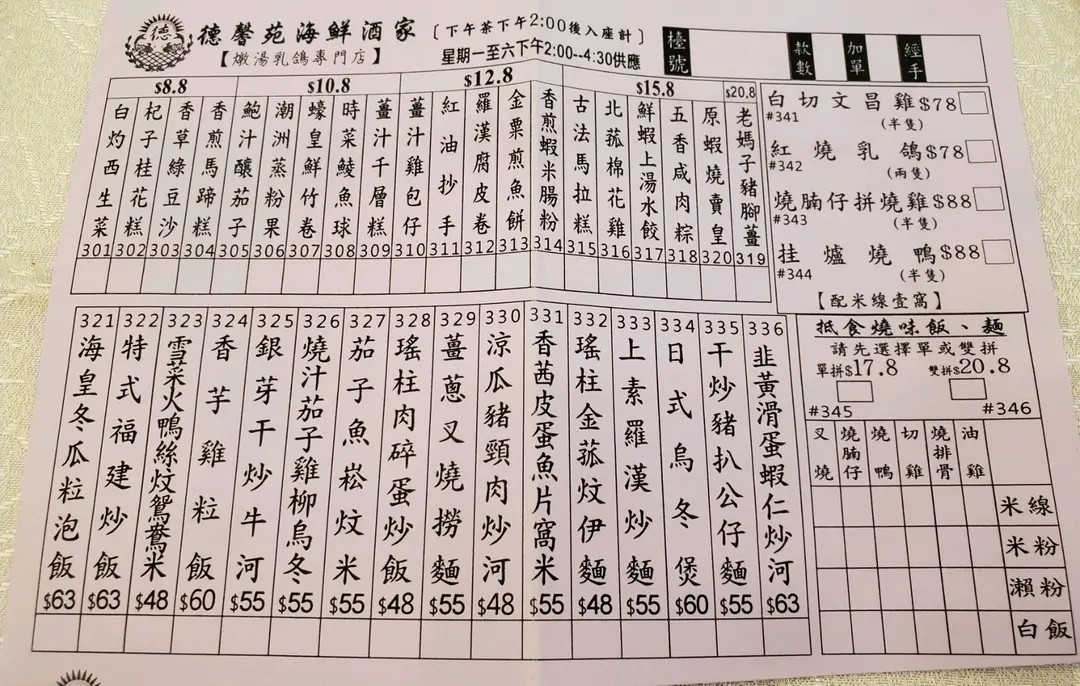 德
德馨苑海鮮酒家
〔下午茶下午2:00後入座計〕
【燉湯乳鴿專門店】
星期一至六下午2:00--4:30供應
檯號
款數
加單
經手
$8.8
$10.8
$12.8
$15.8
$20.8
白灼西生菜
301
杞子桂花糕
302
香草綠豆沙
303
香煎馬蹄糕
304
鮑汁釀茄子
305
潮洲蒸粉果
306
蠔皇鮮竹卷
307
時菜鯪魚球
308
薑汁千層糕
309
薑汁雞包仔
310
紅油抄手
311
羅漢腐皮卷
312
金粟煎魚餅
313
香煎蝦米腸粉
314
古法馬拉糕
315
北菰棉花雞
316
鮮蝦上湯水餃
317
五香咸肉粽
318
原蝦燒賣皇
320
老媽子豬腳薑
319
白切文昌雞$78
#341
(半隻)
紅燒乳鴿$78
#342
(兩隻)
燒腩仔拼燒雞$88
#343
(半隻)
挂爐燒鴨$88
#344
(半隻)
【配米線壹窩】
321
海皇冬瓜粒泡飯
$63
322
特式福建炒飯
$63
323
雪菜火鴨絲炆鴛鴦米
$48
324
香芋雞粒飯
$60
325
銀芽干炒牛河
$55
326
燒汁茄子雞柳烏冬
$55
327
茄子魚崧炆米
$55
328
瑤柱肉碎蛋炒飯
$48
329
薑蔥叉燒撈麵
$55
330
涼瓜豬頸肉炒河
$48
331
香茜皮蛋魚片窩米
$55
332
瑤柱金菰炆伊麵
$48
333
上素羅漢炒麵
$55
334
日式烏冬煲
$60
335
干炒豬扒公仔麵
$55
336
韭黃滑蛋蝦仁炒河
$63
抵食燒味飯、麵
請先選擇單或雙拼
單拼$17.8
雙拼$20.8
#345
#346
叉燒
燒腩仔
燒鴨
切雞
燒排骨
油雞
米線
米粉
瀨粉
白飯